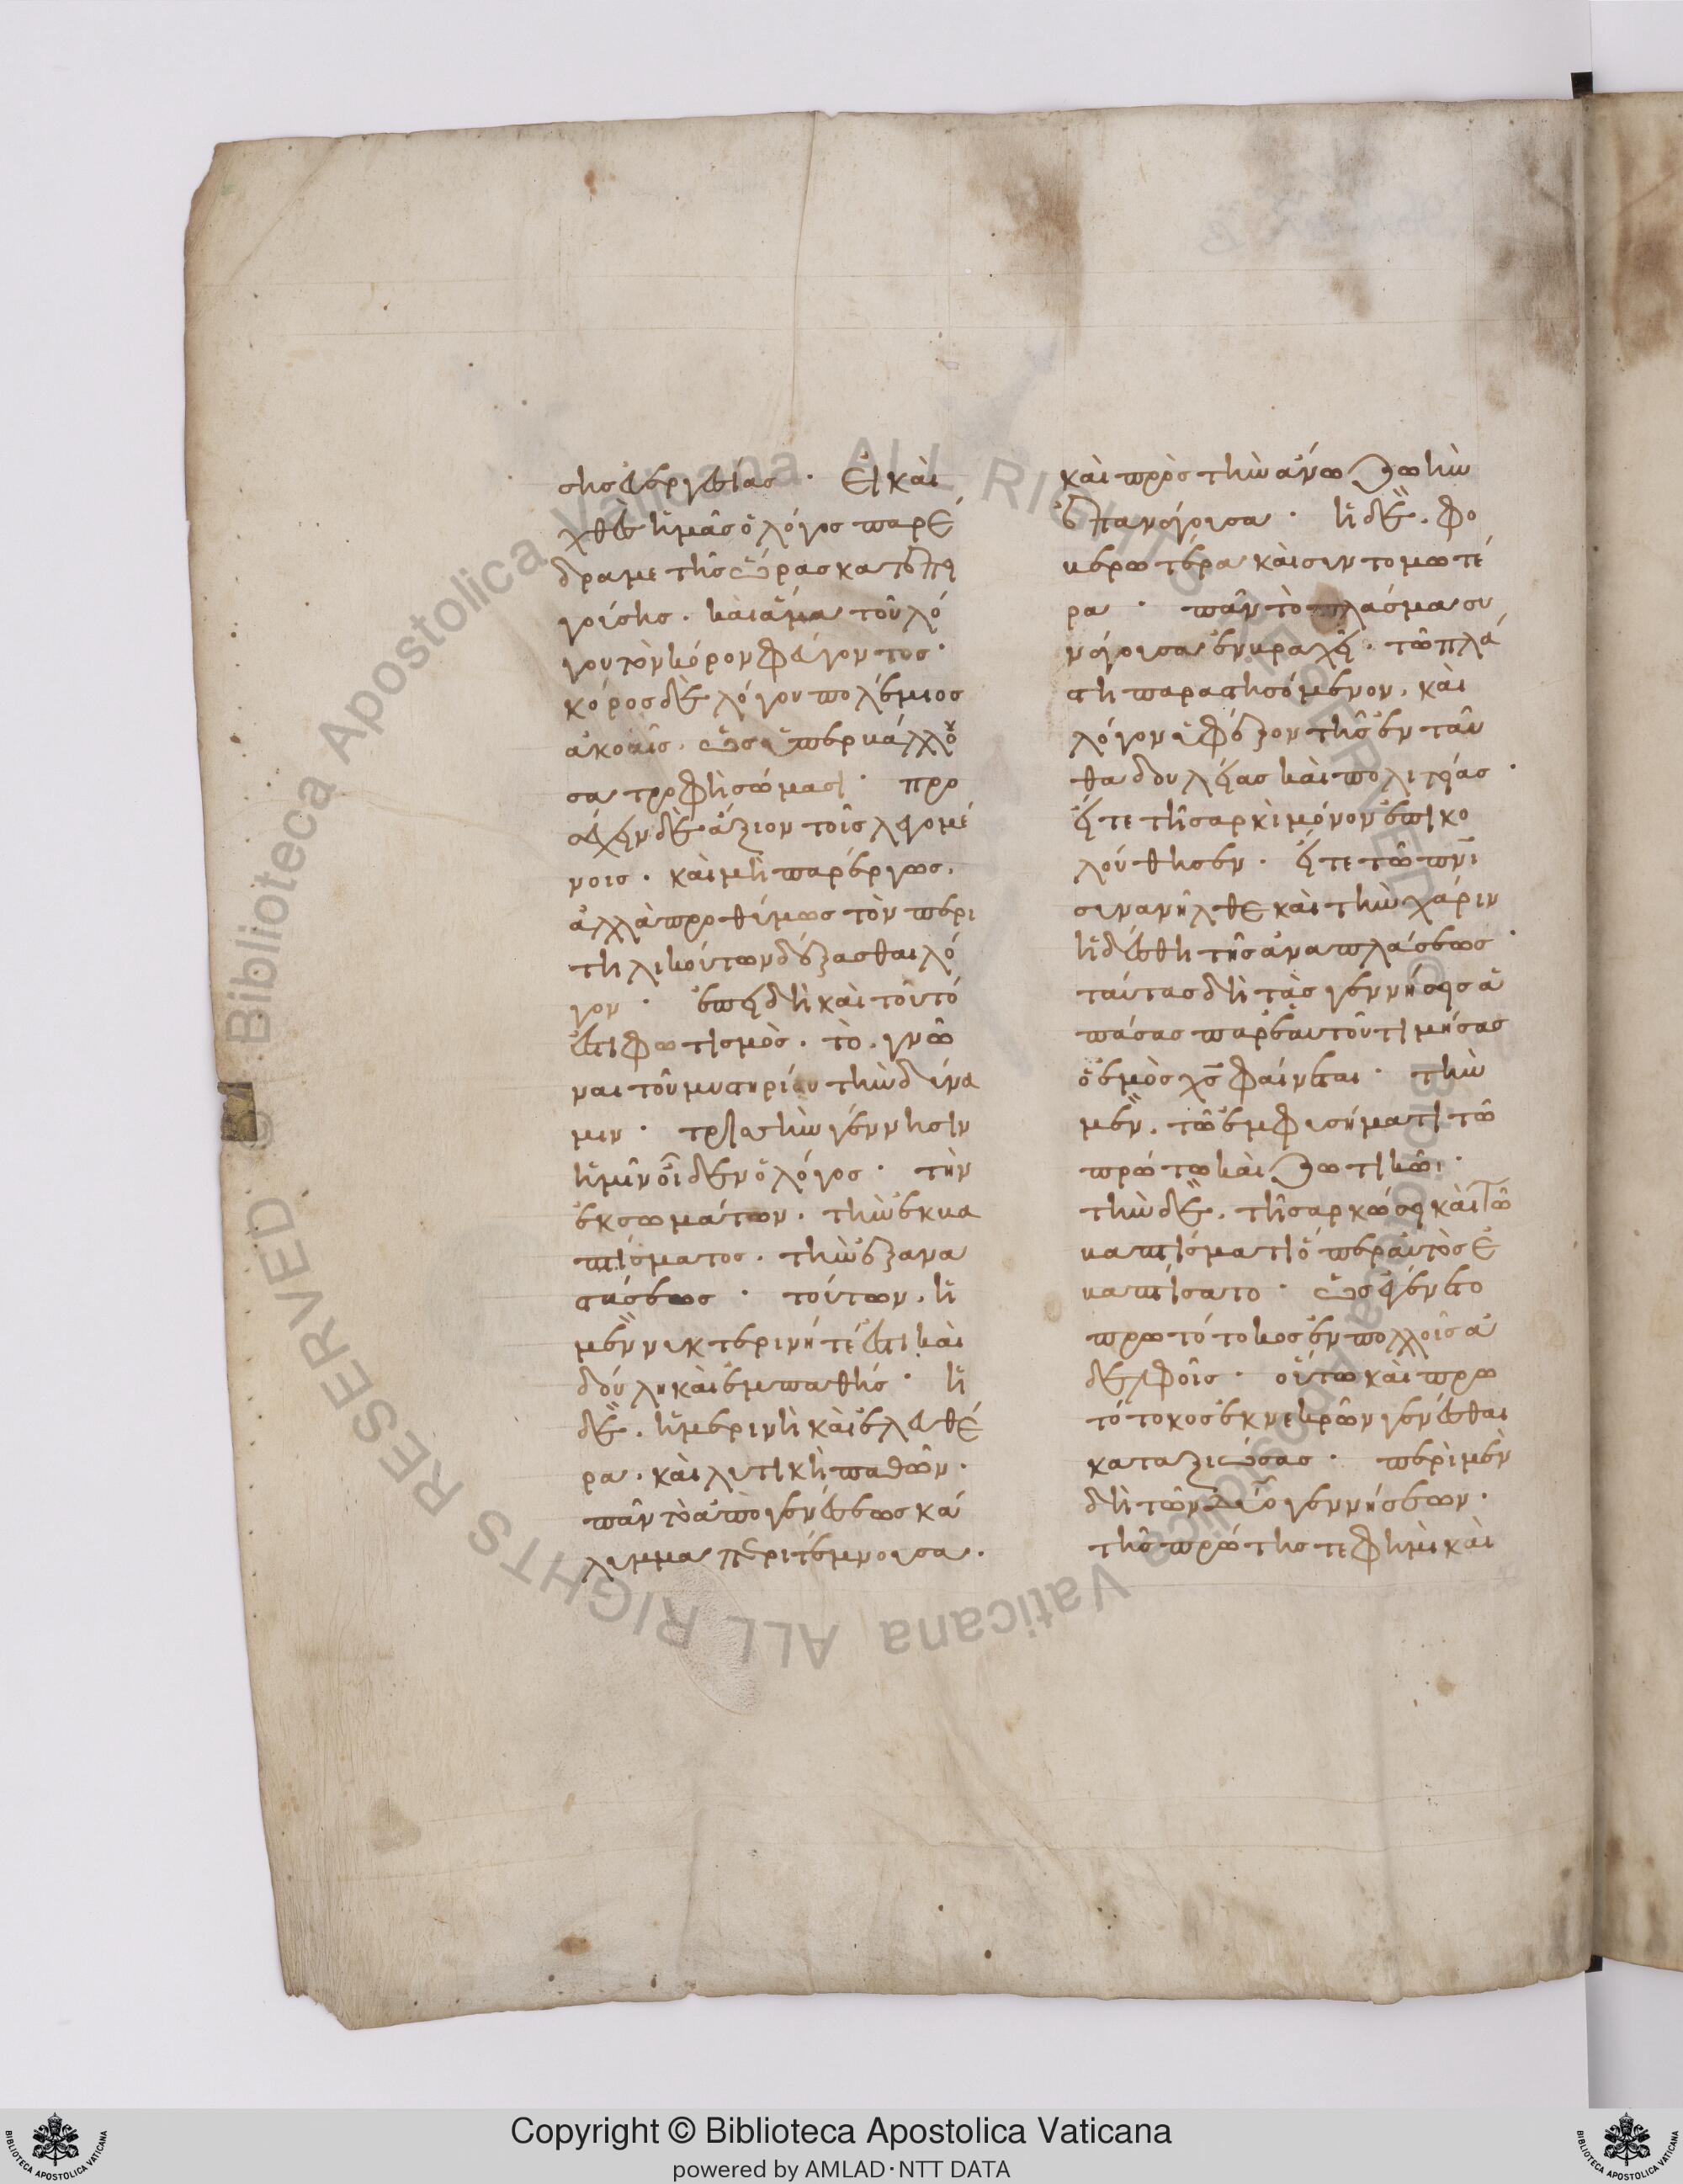 σης εὐεργεσίας · Εἰ καὶ
χθὲς ἡμᾶς ὁ λόγος παρέ
δραμε τῆς ὥρας κατεπει
γούσης . καὶ ἅμα τοῦ λό
γου τὸν κόρον φεύγοντος ·
κόρος δὲ λόγου πολέμιος
ἀκοαῖς . ὡς ὑπερβάλλου
σα τροφὴ σώμασι · προ
σέχειν δὲ ἄξιον τοῖς λεγομέ
νοις . καὶ μὴ παρέργως .
ἀλλὰ προθύμως τὸν περὶ
τηλικούτων δέξασθαι λό
γον · ἐπειδὴ καὶ τοῦτό
ἐστι φωτισμὸς . τὸ . γνῶ
ναι τοῦ μυστηρίου τὴν δύνα
μιν · τρισσὴν γέννησιν
ἡμῖν οἶδεν ὁ λόγος · τὴν
ἐκ σωμάτων . τὴν ἐκ βα
πτίσματος . τὴν ἐξ ἀνα
στάσεως · τούτων . ἡ
μὲν νυκτερινή τέ ἐστι καὶ
δούλη καὶ ἐμπαθής · ἡ
δὲ . ἡμερινὴ καὶ ἐλευθέ
ρα . καὶ λυτικὴ παθῶν .
πᾶν τὸ ἀπὸ γενέσεως κά
λυμμα περιτέμνουσα .
καὶ πρὸς τὴν ἄνω ζωὴν
ἐπανάγουσα · ἡ δὲ . φο
βερωτέρα καὶ συντομωτέ
ρα · πᾶν τὸ πλάσμα συ
νάγουσα ἐν βραχεῖ . τῷ πλά
στῃ παραστησόμενον . καὶ
λόγον ὑφέξον τῆς ἐνταῦ
θα δουλείας καὶ πολιτείας ·
εἴτε τῇ σαρκὶ μόνον ἐπηκο
λούθησεν . εἴτε τῷ πνι
συνανῆλθε καὶ τὴν χάριν
ᾐδέσθη τῆς ἀναπλάσεως ·
ταύτας δὴ τὰς γεννήσεις ἁ
πάσας παρ' ἑαυτοῦ τιμήσας
ὁ ἐμὸς χς φαίνεται · τὴν
μὲν . τῷ ἐμφυσήματι τῷ
πρώτῳ καὶ ζωτικῶι ·
τὴν δὲ . τῇ σαρκώσει καὶ τῷ
βαπτίσματι ὅπερ αὐτὸς ἐ
βαπτίσατο · ὡς ἐγένετο
πρωτότοκος ἐν πολλοῖς ἀ
δελφοῖς · οὕτω καὶ πρω
τότοκος ἐκ νεκρῶν γενέσθαι
καταξιώσας · περὶ μὲν
δὴ τῶν δύο γεννήσεων .
τῆς πρώτης τέ φημι καὶ
Copyright © Biblioteca Apostolica Vaticana
powered by AMLAD·NTT DATA